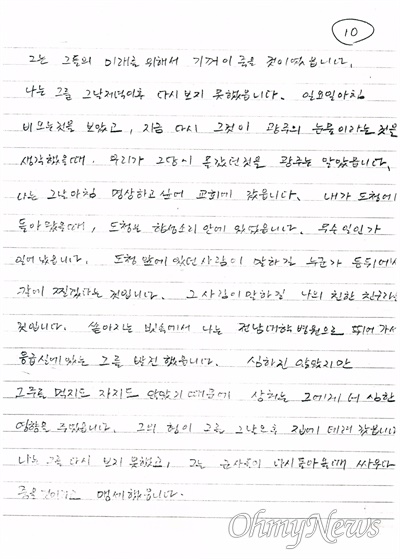 10
그는 그들의 미래를 위해서 기꺼이 죽을 것이었습니다.
나는 그를 그날저녁이후 다시 보지 못했습니다. 일요일아침
비오는것을 보았고, 지금 다시 그것이 광주의 눈물이라는 것을
생각했을때. 우리가 그당시 몰랐던것을 광주는 알았습니다.
나는 그날아침 명상하고 싶어 교회에 갔습니다. 내가 도청에
돌아왔을때, 도청은 함성소리 안에 있었습니다. 무슨일인가
일어났습니다. 도청 앞에 있던 사람이 말하길 누군가 등뒤에서
칼에 찔렸다는 것입니다. 그 사람이 말하길 나의 친한 친구라는
것입니다. 쏟아지는 빗속에서 나는 전남대학병원으로 뛰어가서
응급실에있는 그를 발견했습니다. 심하진 않았지만
그주로 먹지도 자지도 않았기 때문에 상처는 그에게 더 심한
영향을 주었습니다. 그의 형이 그를 그날으로 집에 데려 갔습니다
나는 그를 다시 보지 못했고, 그는 군사들이 다시돌아올때 싸우다
죽을것이라고 맹세했습니다.
OhmyNews